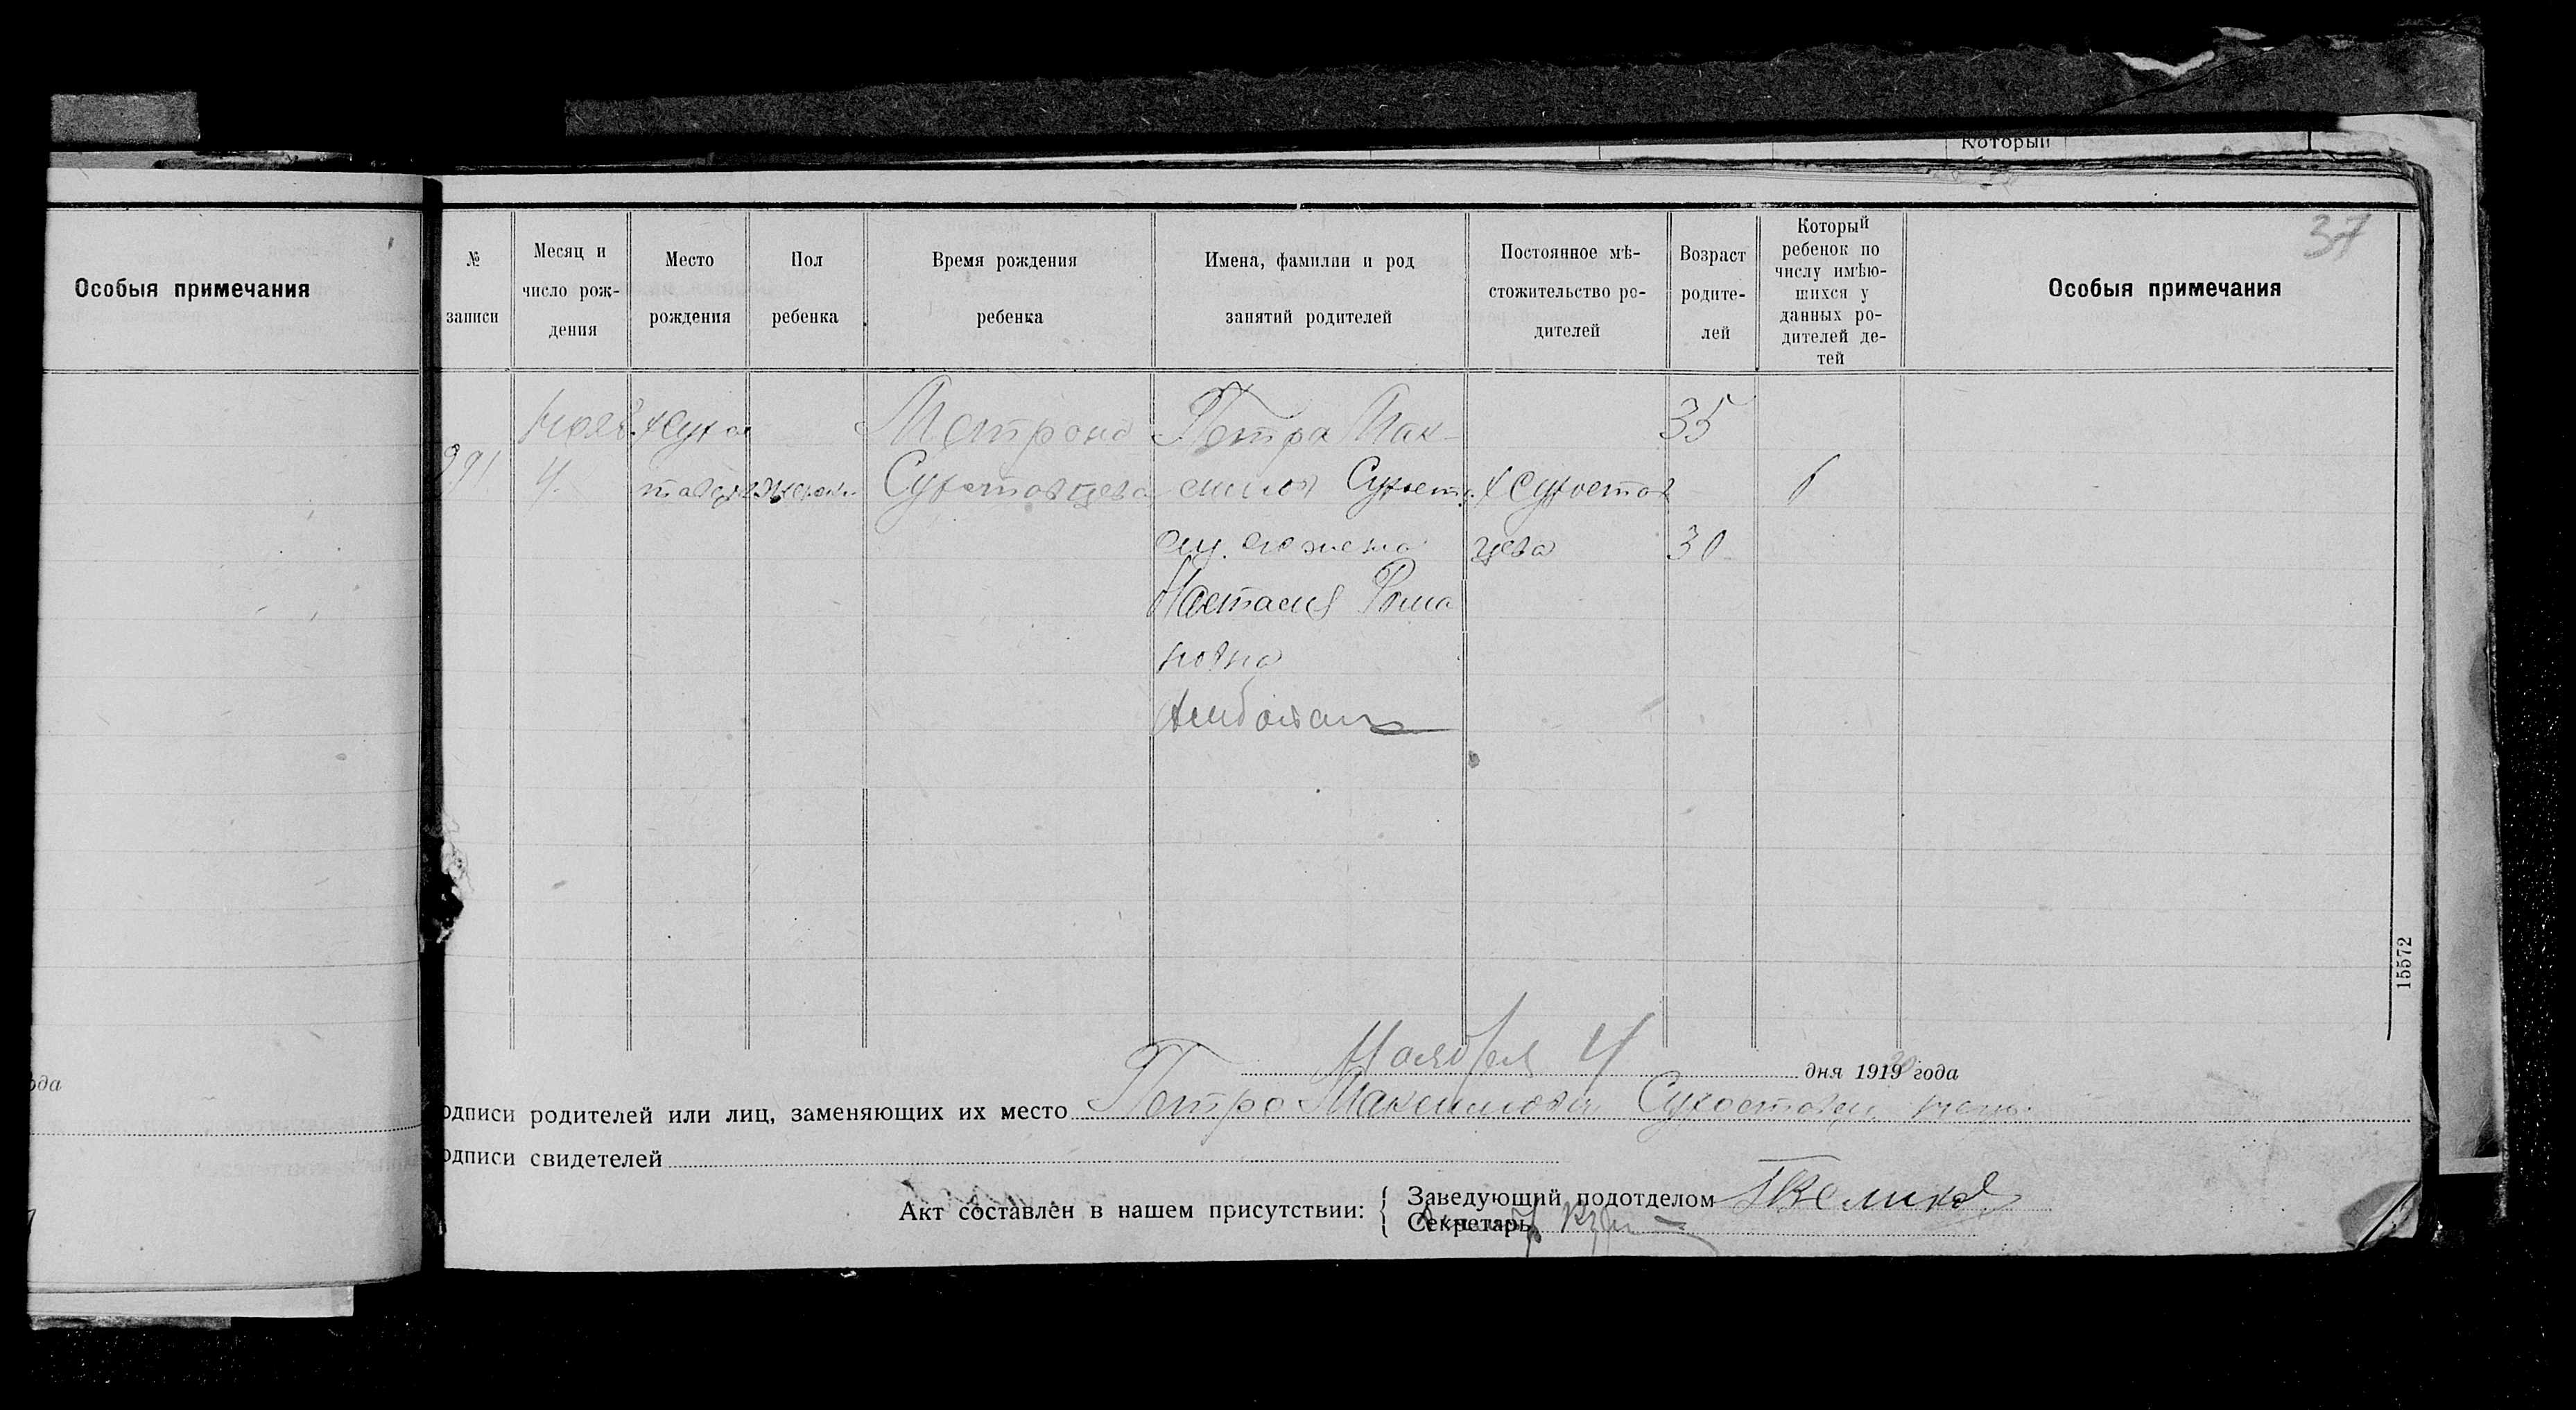 Который
37
Особыя примечания
№ записи
Месяц и число рож-дения
Место рождения
Пол ребенка
Время рождения ребенка
Имена, фамилии и род занятий родителей
Постоянное мѣ-стожительство ро-дителей
Возраст родите-лей
Который ребенок по числу имѣю-шихся у данных ро-дителей де-тей
Особыя примечания
Нояб. х Сухо Метрона Петра Мак 35
291 4. Сухоставцева симов Сухост. х Сухостав 6
его жена цева 30
Настасия Рома
новна
15572
Ноября 4 дня 1919 года
ода
одписи родителей или лиц, заменяющих их место Петро Максимова Сухоставц
одписи свидетелей
Акт составлен в нашем присутствии: Заведующий подотделом
Секретарь